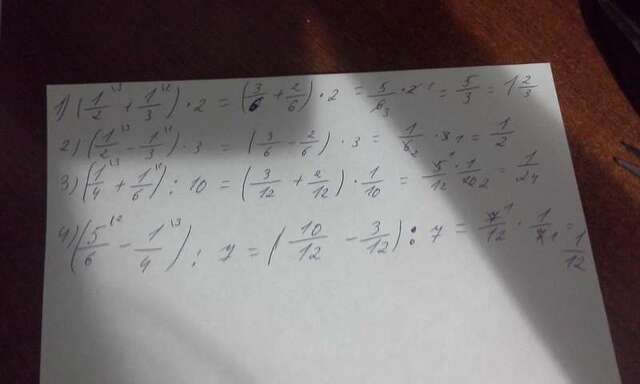 1) (1/2 \3 + 1/3 \2) · 2 = (3/6 + 2/6) · 2 = 5/6 3 · 2 1 = 5/3 = 1 2/3
2) (1/2 \3 - 1/3 \2) · 3 = (3/6 - 2/6) · 3 = 1/6 2 · 3 1 = 1/2
3) (1/4 \3 + 1/6 \2) : 10 = (3/12 + 2/12) · 1/10 = 5 1/12 · 1/10 2 = 1/24
4) (5/6 \2 - 1/4 \3) : 7 = (10/12 - 3/12) : 7 = 7 1/12 · 1/7 1 = 1/12